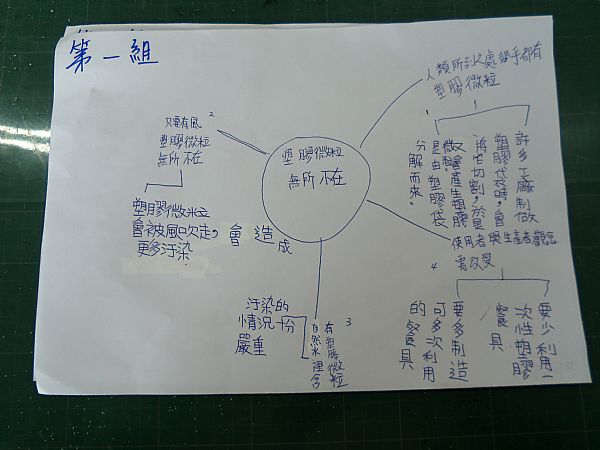 第一組
塑膠微粒
無所不在
1
人類所到之處幾乎都有
塑膠微粒
許多工廠制做
塑膠袋時，會
將它切割，於是
又會產生塑膠
微粒。
是由塑膠袋
分解而來。
2
只要有風
塑膠微粒
無所不在
塑膠微粒
會被風吹走，會造成
更多汙染
3
自然水裡含
有塑膠微粒
汙染的
情況十份
嚴重
4
使用者與生產者觀念
需改變
要少利用一
次性塑膠
餐具
要多制造
可多次利用
的餐具